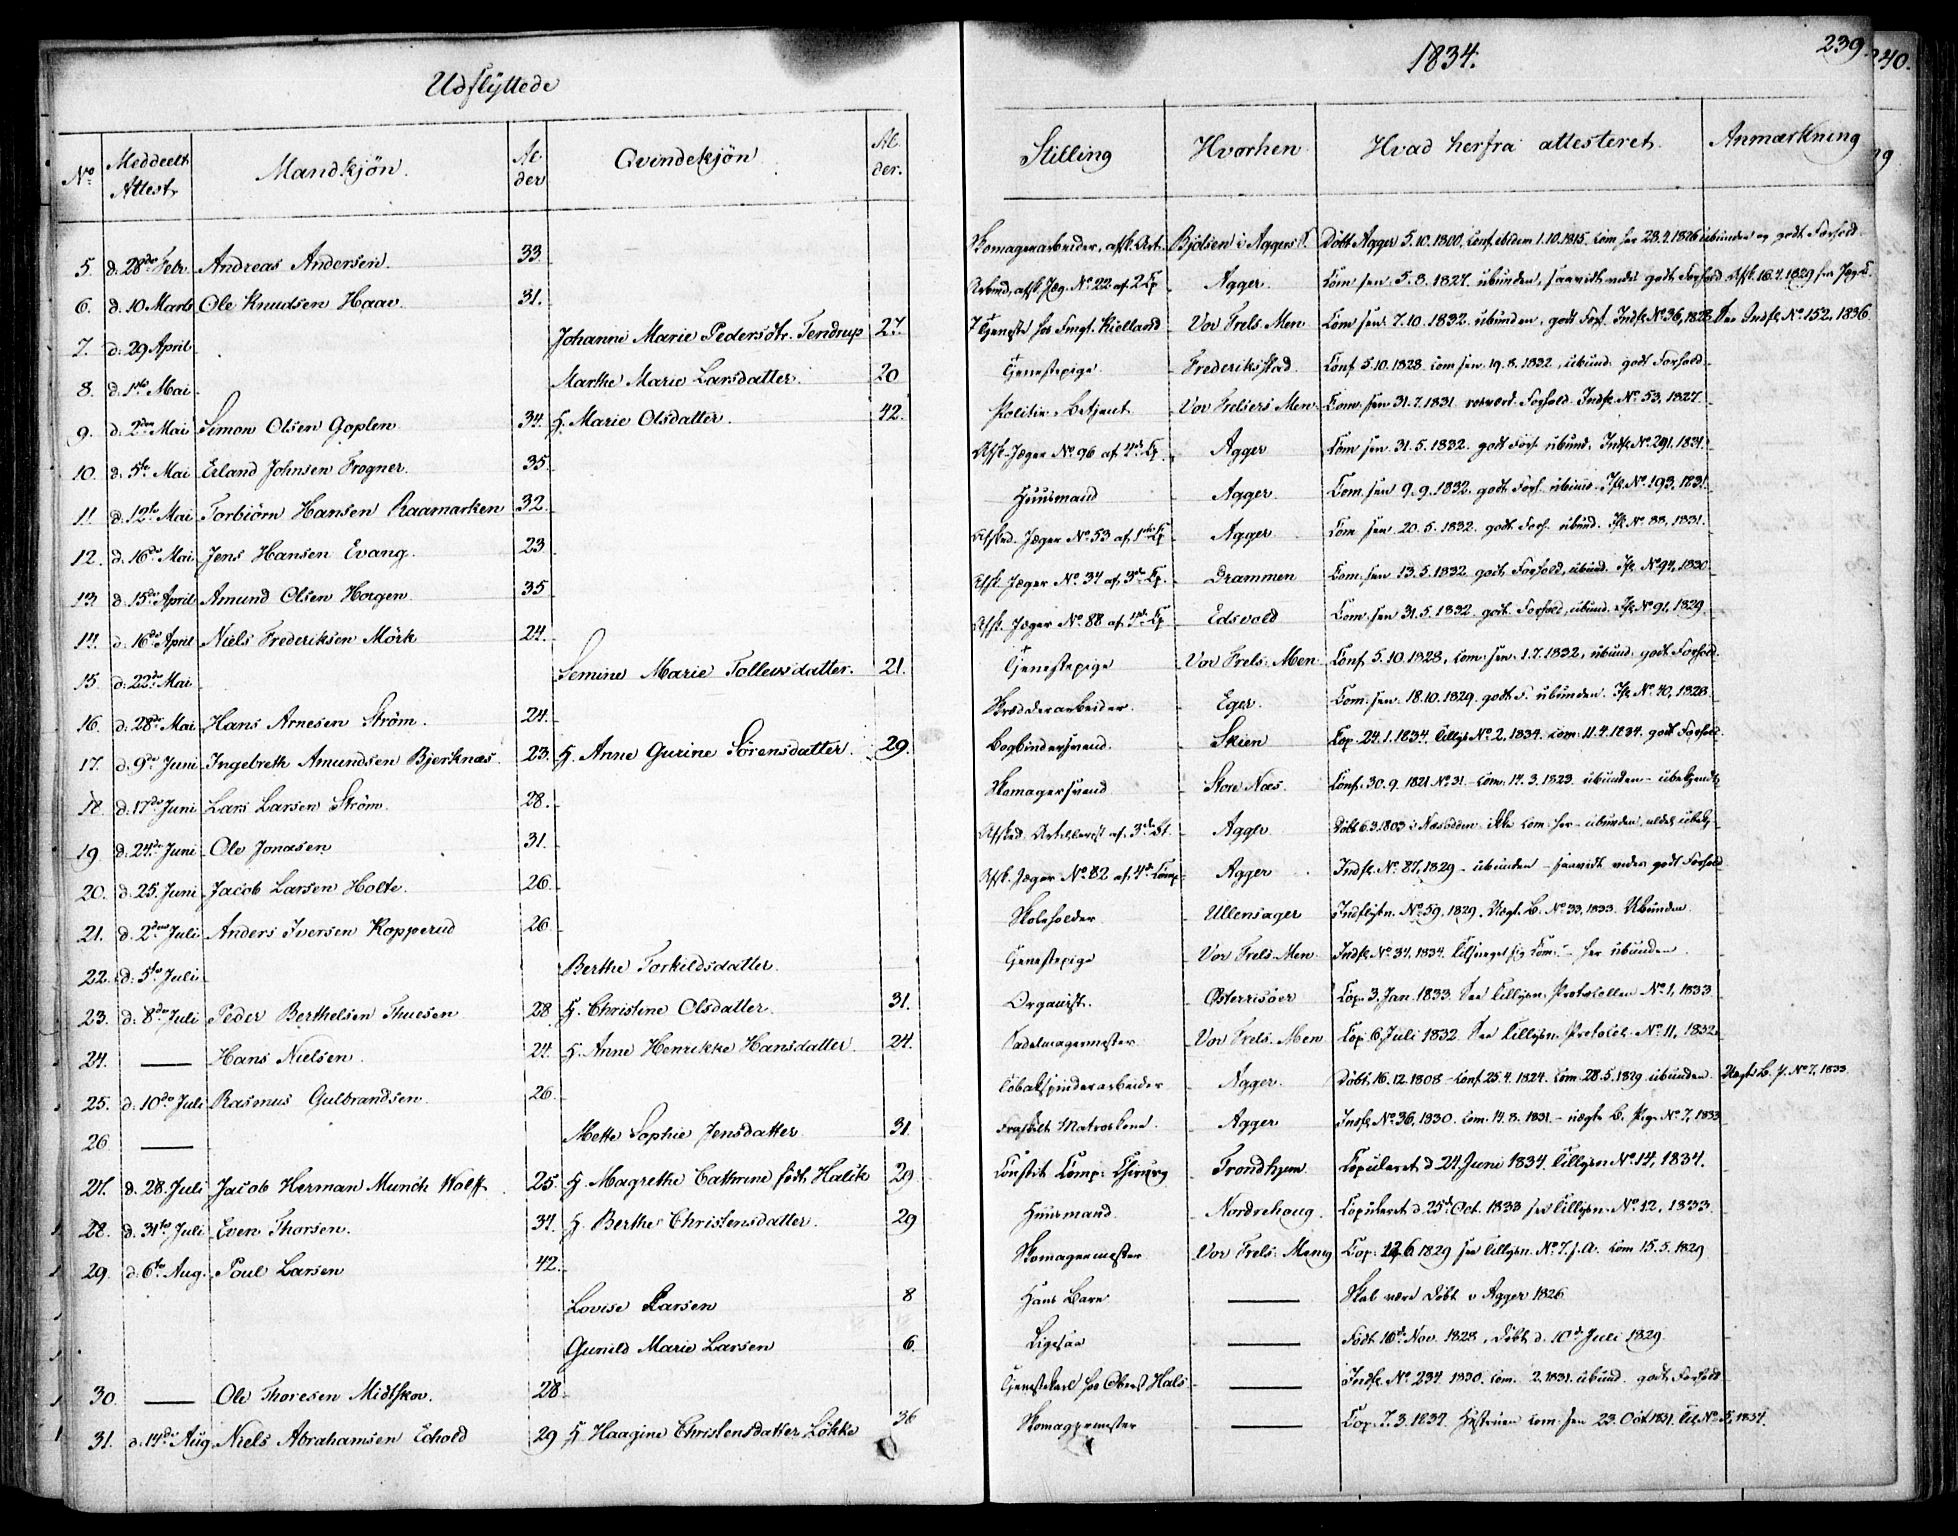 Udflyttede
1834.
239.
240.
No Meddeelt Attest. Mandkjön. Alder Qvindekjön. Alder. Stilling Hvorhen Hvad herfra attesteret. Anmærkning
5. d. 28de Febr. Andreas Andersen. 33. Skomagerarbeider, afsk. Art. Bjölsen i Aggers S. Döbt Agger 5.10.1800, Conf. ibidem 1.10.1815. Com. her 28.9.1826 ubunden og godt Forhold.
6. d. 10 Marts Ole Knudsen Haav. 31. afsk. Jæg. No 22 af 2 Cp. Agger. Com. sen. 5.8.1827. ubunden, saavidt vides godt Forhold Afsk. 16.4.1829 fra Jæg. C.
7. d. 29 April Johanne Marie Pedersdtr. Terdrup 27. Tjeneste hos Kielland Vor Frels. Men. Com. sen. 7.10.1832. ubunden, godt Forh. Indfl. No 36, 1828. See Indfl. No 152, 1836.
8. d. 1ste Mai Marthe Marie Larsdatter. 20 Tjenestepige Frederikstad. Conf. 5.10.1828. Com. sen. 19.8.1832, ubund. godt Forhold.
9. d. 2den Mai Simon Olsen Goplen 34. H. Marie Olsdatter. 42. Politie-Betjent. Vor Frelsers Men. Com. sen. 31.7.1831. Forhold. Indfl. No 53, 1827.
10. d. 5te Mai Erland Johnsen Frogner. 35. Afsk. Jæger No 96 af 4de Cp. Agger Com. sen. 31.5.1832. godt Forh. ubund. Indfl. No 291, 1831.
11 d. 12te Mai Torbiörn Hansen Raamarken 32. Huusmand Agger. Com. sen. 9.9.1832. godt Forh. ubund. Ifl. No 193, 1831.
12. d. 16de Mai Jens Hansen Evang. 23. Afsked. Jæger No 53 af 1ste Cp. Agger Com. sen. 20.5.1832. godt Forh. ubund. Ifl. No 88, 1831.
13. d. 15de April Amund Olsen Horgen. 35 Afsk. Jæger No 34 af 3de Cp. Drammen Com. sen. 13.5.1832 godt Forhold, ubund. Ifl. No 94, 1830.
14. d. 16de April Niels Frederiksen Mörk 24. Afsk. Jæger No 88 af 4de Cp. Edsvold Com. sen. 31.5.1832. godt Forhold, ubund. Ifl. No 91, 1829.
15. d. 22de Mai Semine Marie Tollewsdatter. 21. Tjenestepige Vor Frels. Men. Conf. 5.10.1828, Com. sen. 1.7.1832, ubund. godt Forhold.
16. d. 28de Mai Hans Arnesen Ström. 24. Skrædderarbeider. Eger. Com. sen. 18.10.1829. godt F. ubunden. Ifl. No 40, 1828.
17. d. 9de Juni Ingebreth Amundsen Bjerknæs. 23. H. Anne Gurine Sörensdatter. 29. Bogbindersvend. Skien Cop. 24.1.1834. Tillys. No 2, 1834. Com. 11.4.1834. godt Forhold.
18. d. 17de Juni Lars Larsen Ström. 28. Skomagersvend Store Næs. Conf. 30.9.1821. No 31. - Com. 14.3.1823. ubunden - ubekjendt
19. d. 24de Juni Ole Jonasen 31. Afsked. Artillerist af 3de Agger Döbt 6.3.1803 i Næsodden ikke Com. her - ubunden,
20. d. 25. Juni Jacob Larsen Holte. 26. Afsk. Jæger No 82 af 4de Comp. Agger Indfl. No 87, 1829 - ubunden - saavidt vides godt Forhold
21. d. 2den Juli Anders Iversen Kopperud 26. Skoleholder Ullensager Indflytn. No 59, 1829. Vægt. B. No 33, 1833. Ubunden.
22. d. 5te Juli Berthe Torkildsdatter. Tjenestepige Vor Frels. Men. Indfl. No 34, 1834. her ubunden.
23. d. 8de Juli Peder Berthelsen Thuesen 28. H. Christine Olsdatter. 31. Organist. Österrisöer Cop. 3. Jan. 1833. See Tillysn. Protocollen No 1, 1833
24. — Hans Nielsen. 24. H. Anne Henrikke Hansdatter. 24. Sadelmagermester Vor Frels. Men. Cop. 6. Juli 1832. See Tillysn. Protocol. No 11, 1832.
25. d. 10de Juli Rasmus Gulbrandsen. 26. Tobakspinderarbeider Agger. Döbt. 16.12.1808 - Conf. 25.4.1824. Com. 28.5.1829 ubunden Vægt. B. P. No 7, 1833.
26 — Mette Sophie Jensdatter 31. Fraskilt Matroskone. Agger Indfl. No 36, 1830. Com. 14.8.1831 - vægt. B. No 7, 1833
27. d. 28. Juli Jacob Herman Munch Wolff. 25. H. Magrethe Cathrine födt Halck 29 Constit. Comp. Chirurg Trondhjem. Copuleret d. 24 Juni 1834. Tillysn. No 14, 1834.
28. d. 31te Juli Even Thorsen. 34. H. Berthe Christensdatter. 29 Huusmand. Nordrehoug. Copuleret d. 25de Oct. 1833 see Tillysn. No 12, 1833.
29. d. 6te Aug. Poul Larsen 42. Skomagermester Vor Frels. Meng. Cop. 12.6.1829 see Tillysn. No 7. f. A. Com. 15.5.1829
Lovise Larsen 8 Hans Barn — Skal være Döbt i Agger 1826
Gunild Marie Larsen 6. Ligesaa — Födt 10de Nov. 1828, Döbt d. 10de Juli 1829.
30. — Ole Thoresen Midtskov. 28. Tjenestekarl hos Oberst Hals — Indfl. No 234. 1830. Com. 2.1831. ubund. godt Forhold
31. d. 14de Aug. Niels Abrahamsen Echold 29 H. Haagine Christensdatter Lökke 36 Skomagermester — Cop. 7.3.1834. Hustruen Com. sen. 23. Oct. 1831. Till. No 5, 1834.